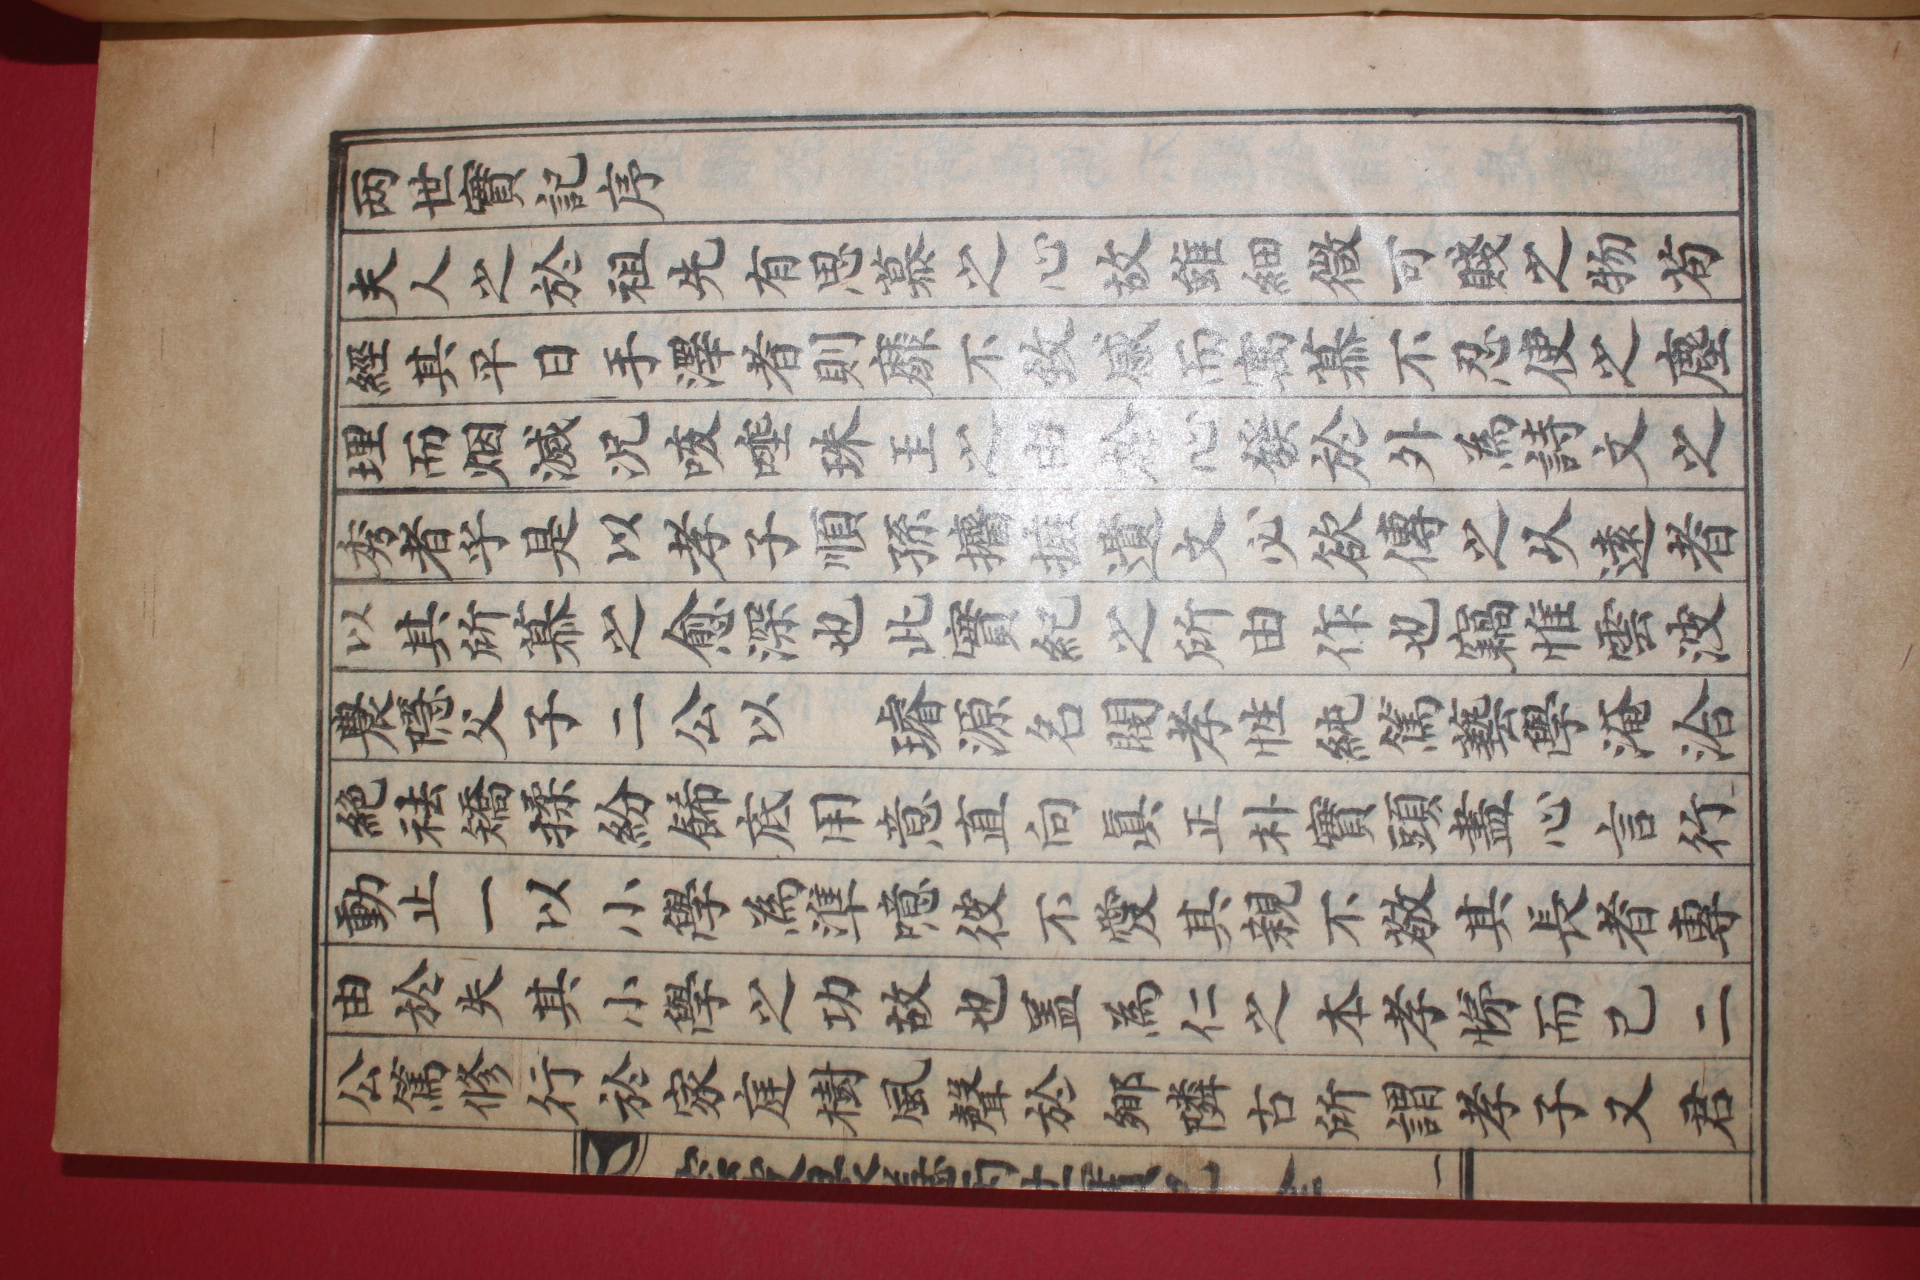 兩世實記序
夫人之於祖先有思慕之心故雖細微可賤之物苟
經其平日手澤者則靡不致感而寓慕不忍使之塵
埋而烟滅況咳唾珠玉之由於心發於外爲詩文之
秀者乎是以孝子順孫攟摭遺文必欲傳之久遠者
以其所慕之愈深也此實紀之所由作也竊惟雲波
農隱父子二公以 璿源名閥孝性純篤藝學淹洽
絶祛矯揉紛餙底用意直向眞正朴實頭盡心言行
動止一以小學爲準噫彼不愛其親不敬其長者專
由於失其小學之功故也盖爲仁之本孝悌而已二
公篤修行於家庭樹風聲於鄉隣古所謂孝子又君